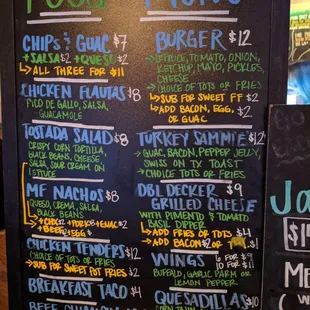 FOOD
MENU
CHIPS & GUAC $7
+ SALSA $2 + QUESO $2
→ ALL THREE FOR $11
CHICKEN FLAUTAS $8
PICO DE GALLO, SALSA,
GUACAMOLE
TOSTADA SALAD $8
CRISPY CORN TORTILLA,
BLACK BEANS, CHEESE
SALSA, SOUR CREAM ON
LETTUCE
MF NACHOS $8
QUESO, CREMA, SALSA,
BLACK BEANS
+ CHX $2 + PORK $2 + GUAC $2
+ BEEF $2 + EGG
CHICKEN TENDERS $12
CHOICE OF TOTS OR FRIES
→ SUB FOR SWEET POT FRIES $2
BREAKFAST TACO $4
BEEF
BURGER $12
→ LETTUCE, TOMATO, ONION,
KETCHUP, MAYO, PICKLES,
CHEESE
→ CHOICE OF TOTS OR FRIES
→ SUB FOR SWEET FF $2
→ ADD BACON, EGG, $2
OR GUAC
TURKEY SAMMIE $12
→ GUAC, BACON, PEPPER JELLY,
SWISS ON TX TOAST
→ CHOICE TOTS OR FRIES
DBL DECKER $9
GRILLED CHEESE
WITH PIMENTO & TOMATO
BASIL DIPPER
→ ADD FRIES OR TOTS $4
→ ADD BACON $2 OR $1
WINGS 6 FOR $9
10 FOR $11
BUFFALO, GARLIC PARM OR
LEMON PEPPER
QUESADILLAS $10
Ja
$1
M